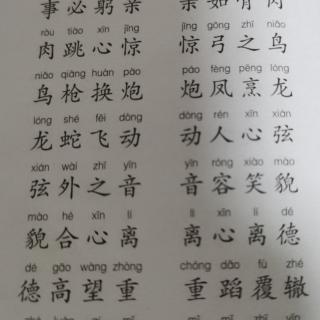 事必躬亲 亲如骨肉
ròu tiào xīn jīng jīng gōng zhī niǎo
肉跳心惊 惊弓之鸟
niǎo qiāng huàn pào páo fèng pēng lóng
鸟枪换炮 炮凤烹龙
lóng shé fēi dòng dòng rén xīn xián
龙蛇飞动 动人心弦
xián wài zhī yīn yīn róng xiào mào
弦外之音 音容笑貌
mào hé xīn lí lí xīn lí dé
貌合心离 离心离德
dé gāo wàng zhòng chóng dǎo fù zhé
德高望重 重蹈覆辙